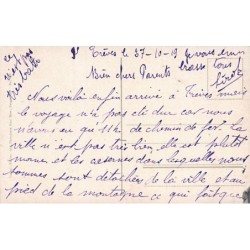 ce
n'est pas
très bath
Trèves le 27-10-19
Je vous
embrasse
tous
fort
Bien chers Parents
Nous voilà enfin arrivé à Trèves mais
le voyage n'a pas été dur car nous
n'avons eu qu 11 h de chemin de fer. La
ville n'est pas très bien elle est plutôt
morne et les casernes dans lesquelles nous
sommes sont détachées de la ville et au
pied de la montagne ce qui fait que